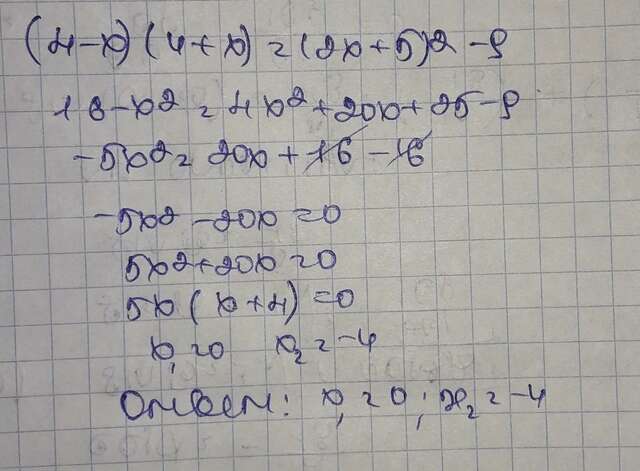 (4-x)(4+x)=(2x+5)2-9
16-x2=4x2+20x+25-9
-5x2=20x+16-16
-5x2-20x=0
5x2+20x=0
5x(x+4)=0
x1=0 x2=-4
Ответ: x1=0; x2=-4